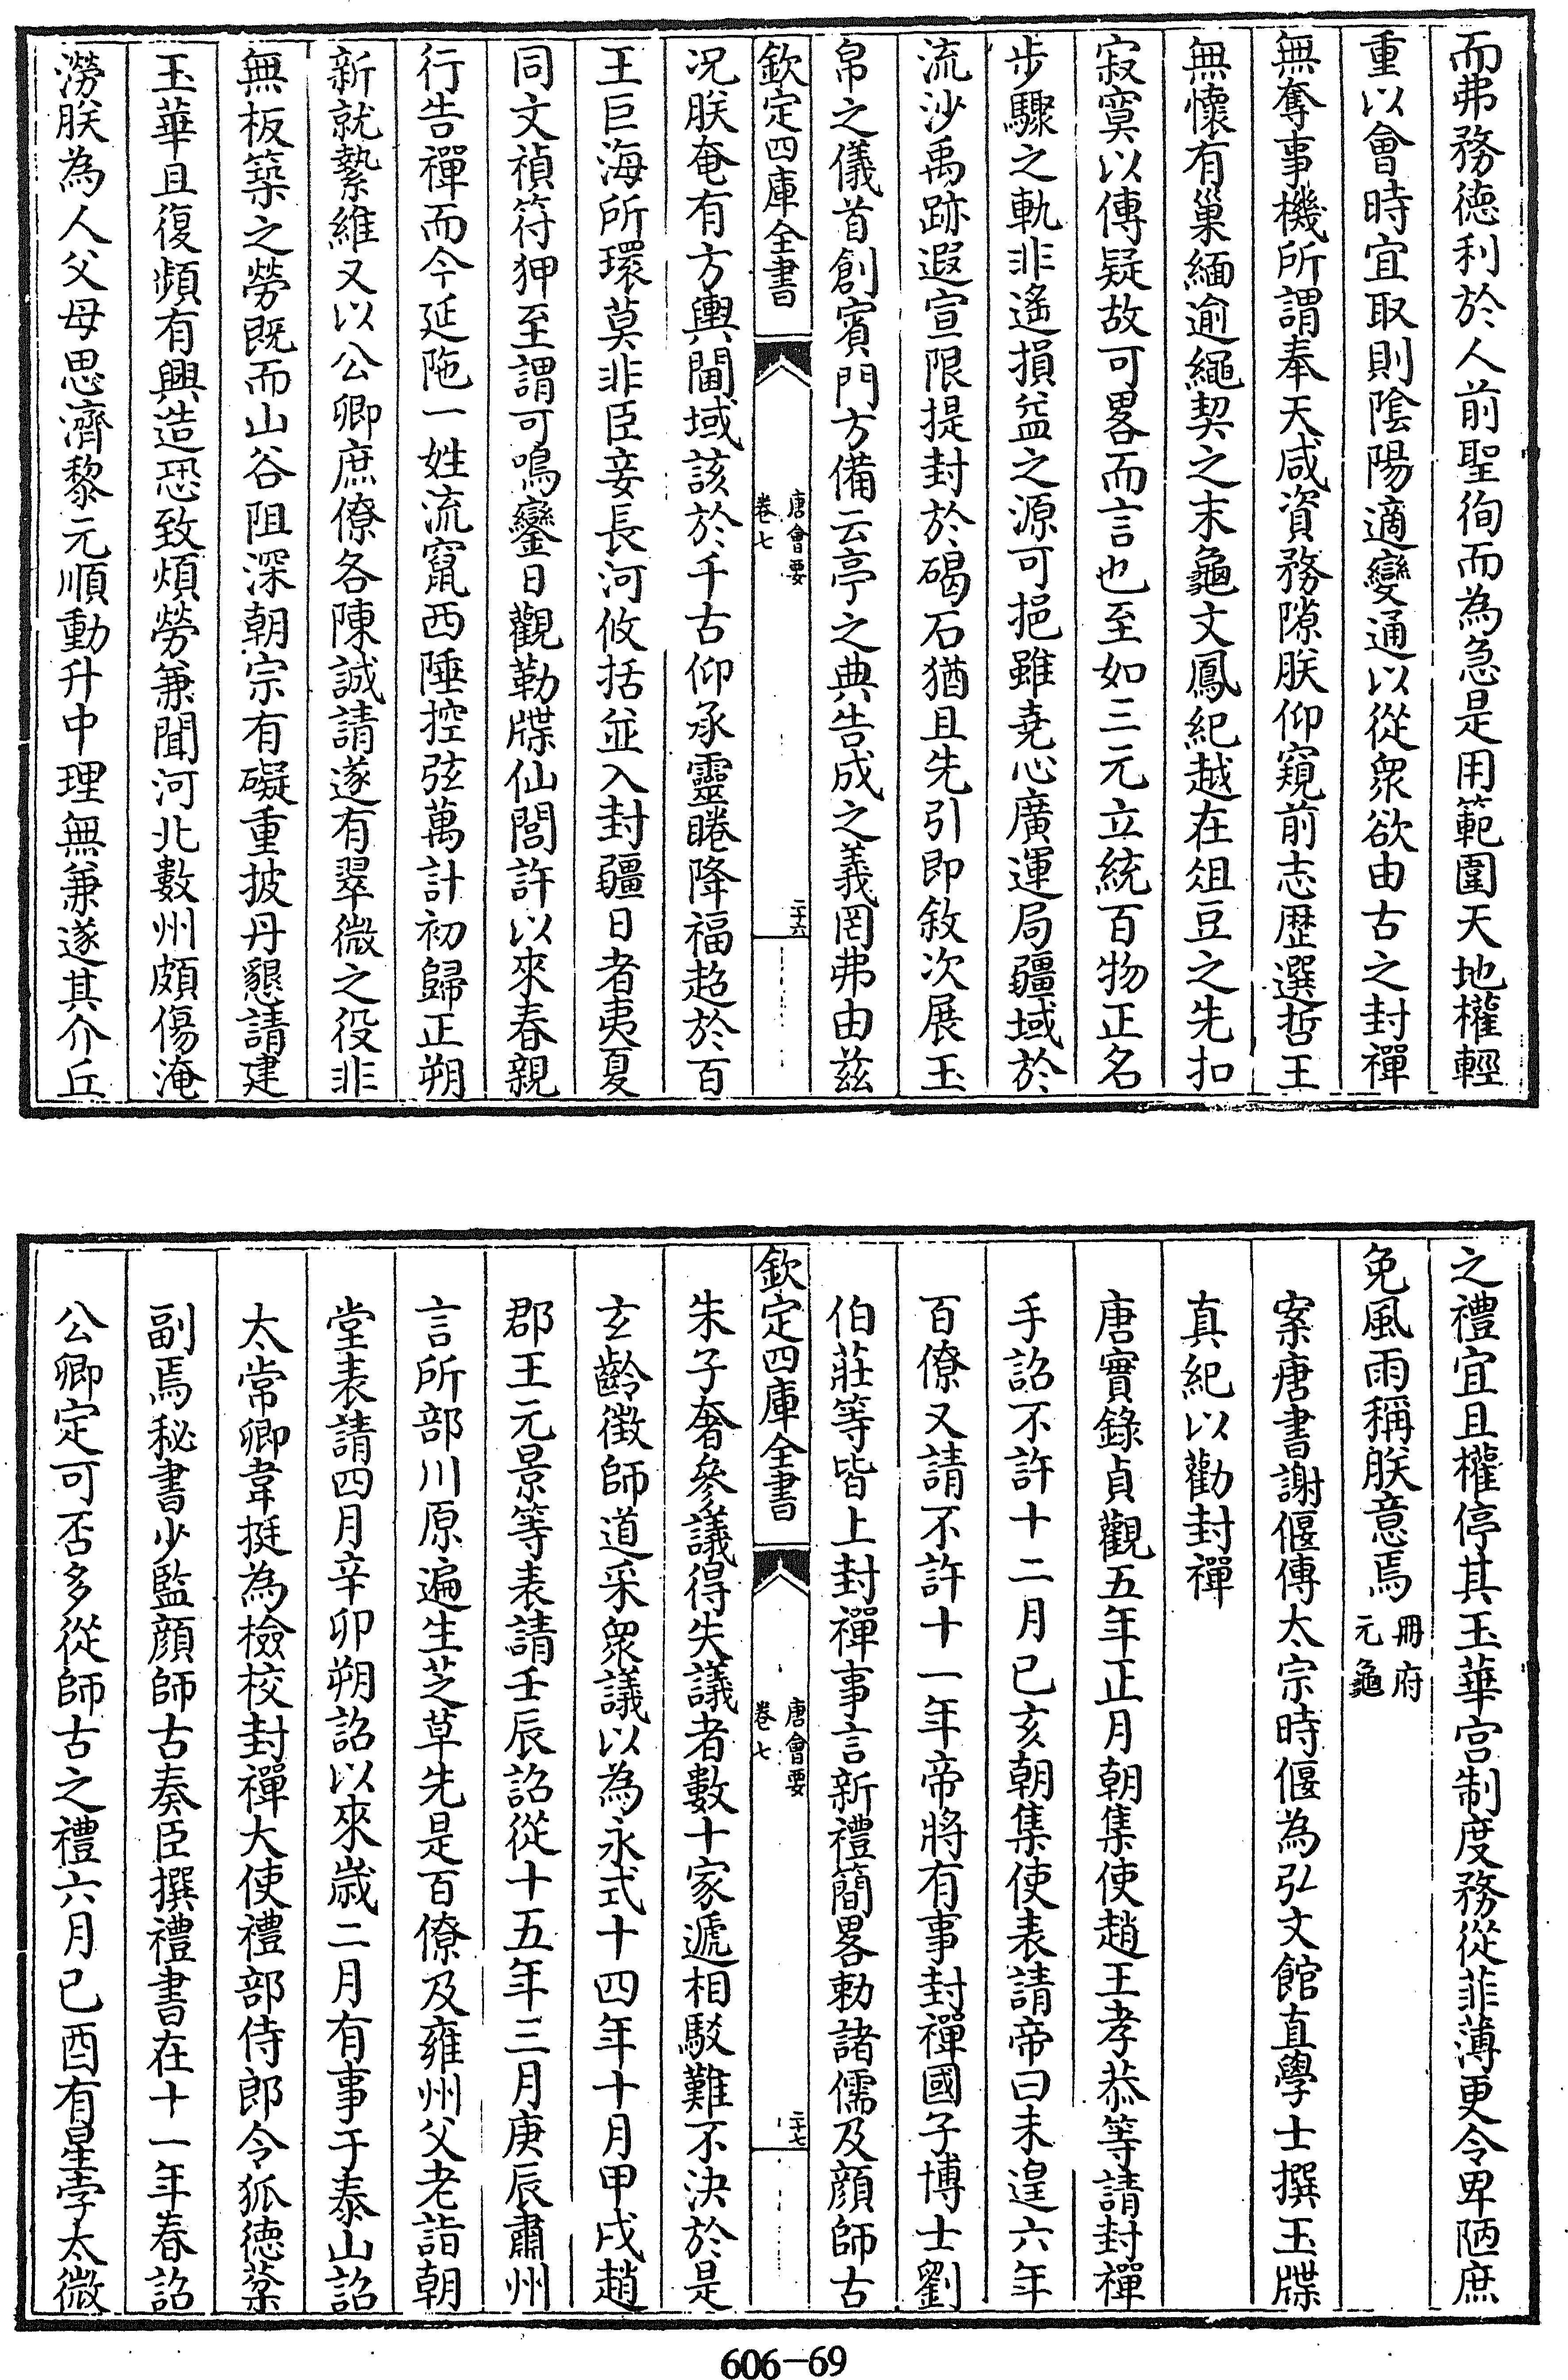 而弗務徳利於人前聖徇而為急是用範圍天地權輕
重以會時宜取則陰陽適變通以從衆欲由古之封禪
無奪事機所謂奉天咸資務隙朕仰窺前志歴選哲王
無懷有巢緬逾繩契之末龜文鳳紀越在俎豆之先扣
寂寞以傳疑故可畧而言也至如三元立統百物正名
步驟之軌非遙損益之源可挹雖堯心廣運局疆域於
流沙禹跡遐宣限提封於碣石猶且先引即敘次展玉
帛之儀首創賓門方備云亭之典告成之義罔弗由兹
欽定四庫全書
唐會要
卷七
二十六
况朕奄有方輿閫域該於千古仰承靈睠降福超於百
王巨海所環莫非臣妾長河攸括並入封疆日者夷夏
同文禎符狎至謂可鳴鑾日觀勒牒仙閭許以來春親
行告禪而今延陁一姓流竄西陲控弦萬計初歸正朔
新就縶維又以公卿庶僚各陳誠請遂有翠微之役非
無板築之勞既而山谷阻深朝宗有礙重披丹懇請建
玉華且復頻有興造恐致煩勞兼聞河北數州頗傷淹
澇朕為人父母思濟黎元順動升中理無兼遂其介丘
之禮宜且權停其玉華宫制度務從菲薄更令卑陋庶
免風雨稱朕意焉冊府元龜
案唐書謝偃傳太宗時偃為弘文館直學士撰玉牒
真紀以勸封禪
唐實錄貞觀五年正月朝集使趙王孝恭等請封禪
手詔不許十二月已亥朝集使表請帝曰未遑六年
百僚又請不許十一年帝將有事封禪國子博士劉
伯莊等皆上封禪事言新禮簡畧勅諸儒及顔師古
欽定四庫全書
唐會要
卷七
二十七
朱子奢參議得失議者數十家遞相駁難不決於是
玄齡徴師道采衆議以為永式十四年十月甲戌趙
郡王元景等表請壬辰詔從十五年三月庚辰肅州
言所部川原遍生芝草先是百僚及雍州父老詣朝
堂表請四月辛卯朔詔以來嵗二月有事于泰山詔
太常卿韋挺為檢校封禪大使禮部侍郎令狐德棻
副焉秘書少監顔師古奏臣撰禮書在十一年春詔
公卿定可否多從師古之禮六月已酉有星孛太微
606-69